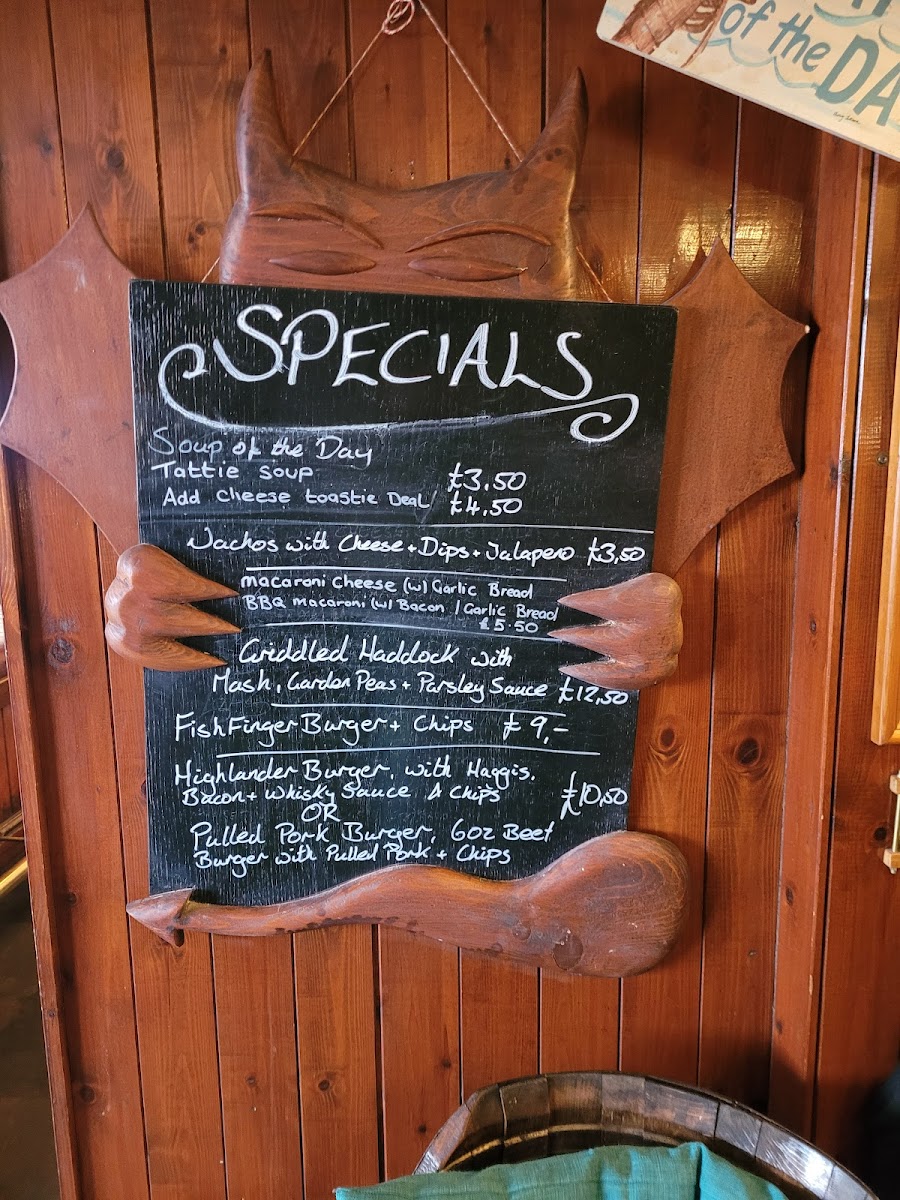 of the DA
SPECIALS
Soup of the Day
Tattie soup £3.50
Add cheese toastie Deal £4.50
Nachos with Cheese + Dips + Jalapeno £3,50
macaroni cheese (w) Garlic Bread
BBQ macaroni (w) Bacon / Garlic Bread
£5.50
Griddled Haddock with
Mash, Garden Peas + Parsley Sauce £12,50
Fish Finger Burger + Chips £9,-
Highlander Burger, with Haggis,
Bacon + Whisky Sauce & Chips £10,50
OR
Pulled Pork Burger, 6oz Beef
Burger with Pulled Pork + Chips